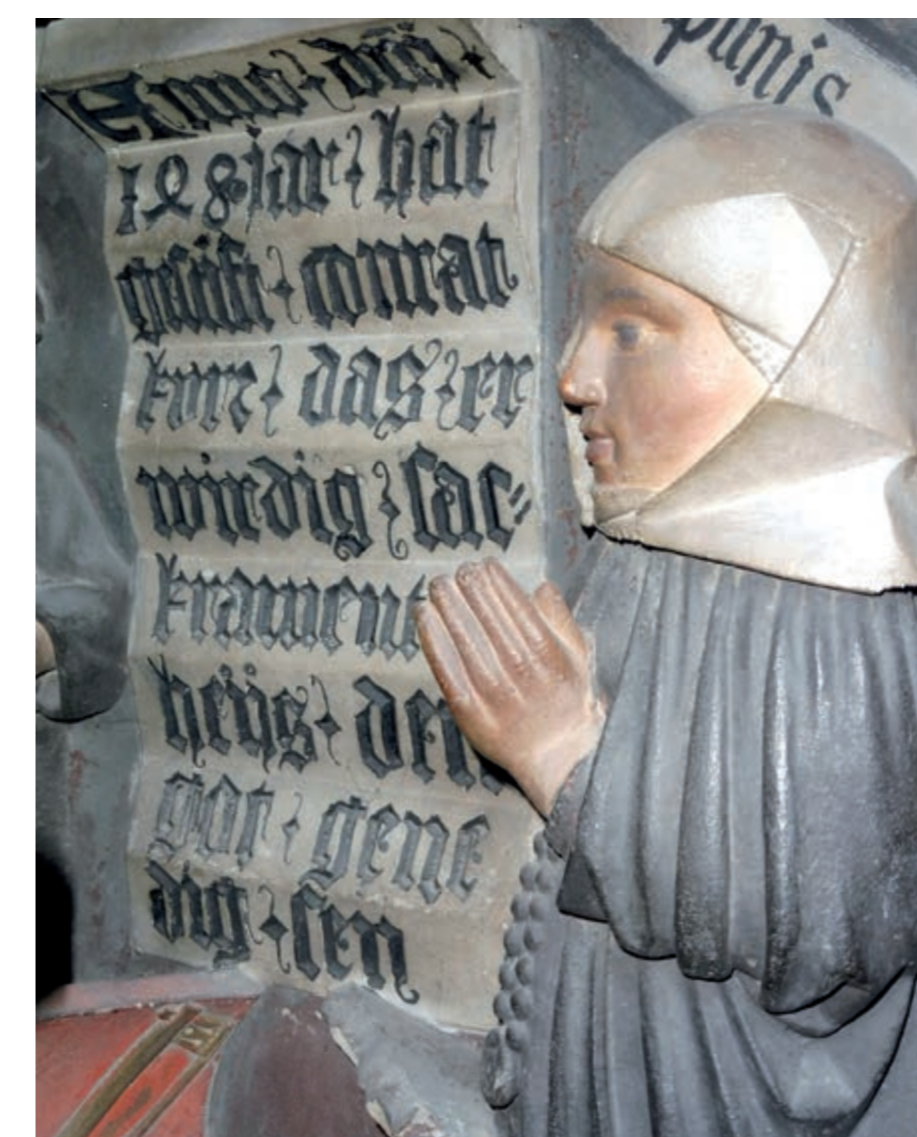 panis
Anno dni
148 jar hat
gestift conrat
korn das er
wirdig sac=
krament
heys dem
got gene
dig sey